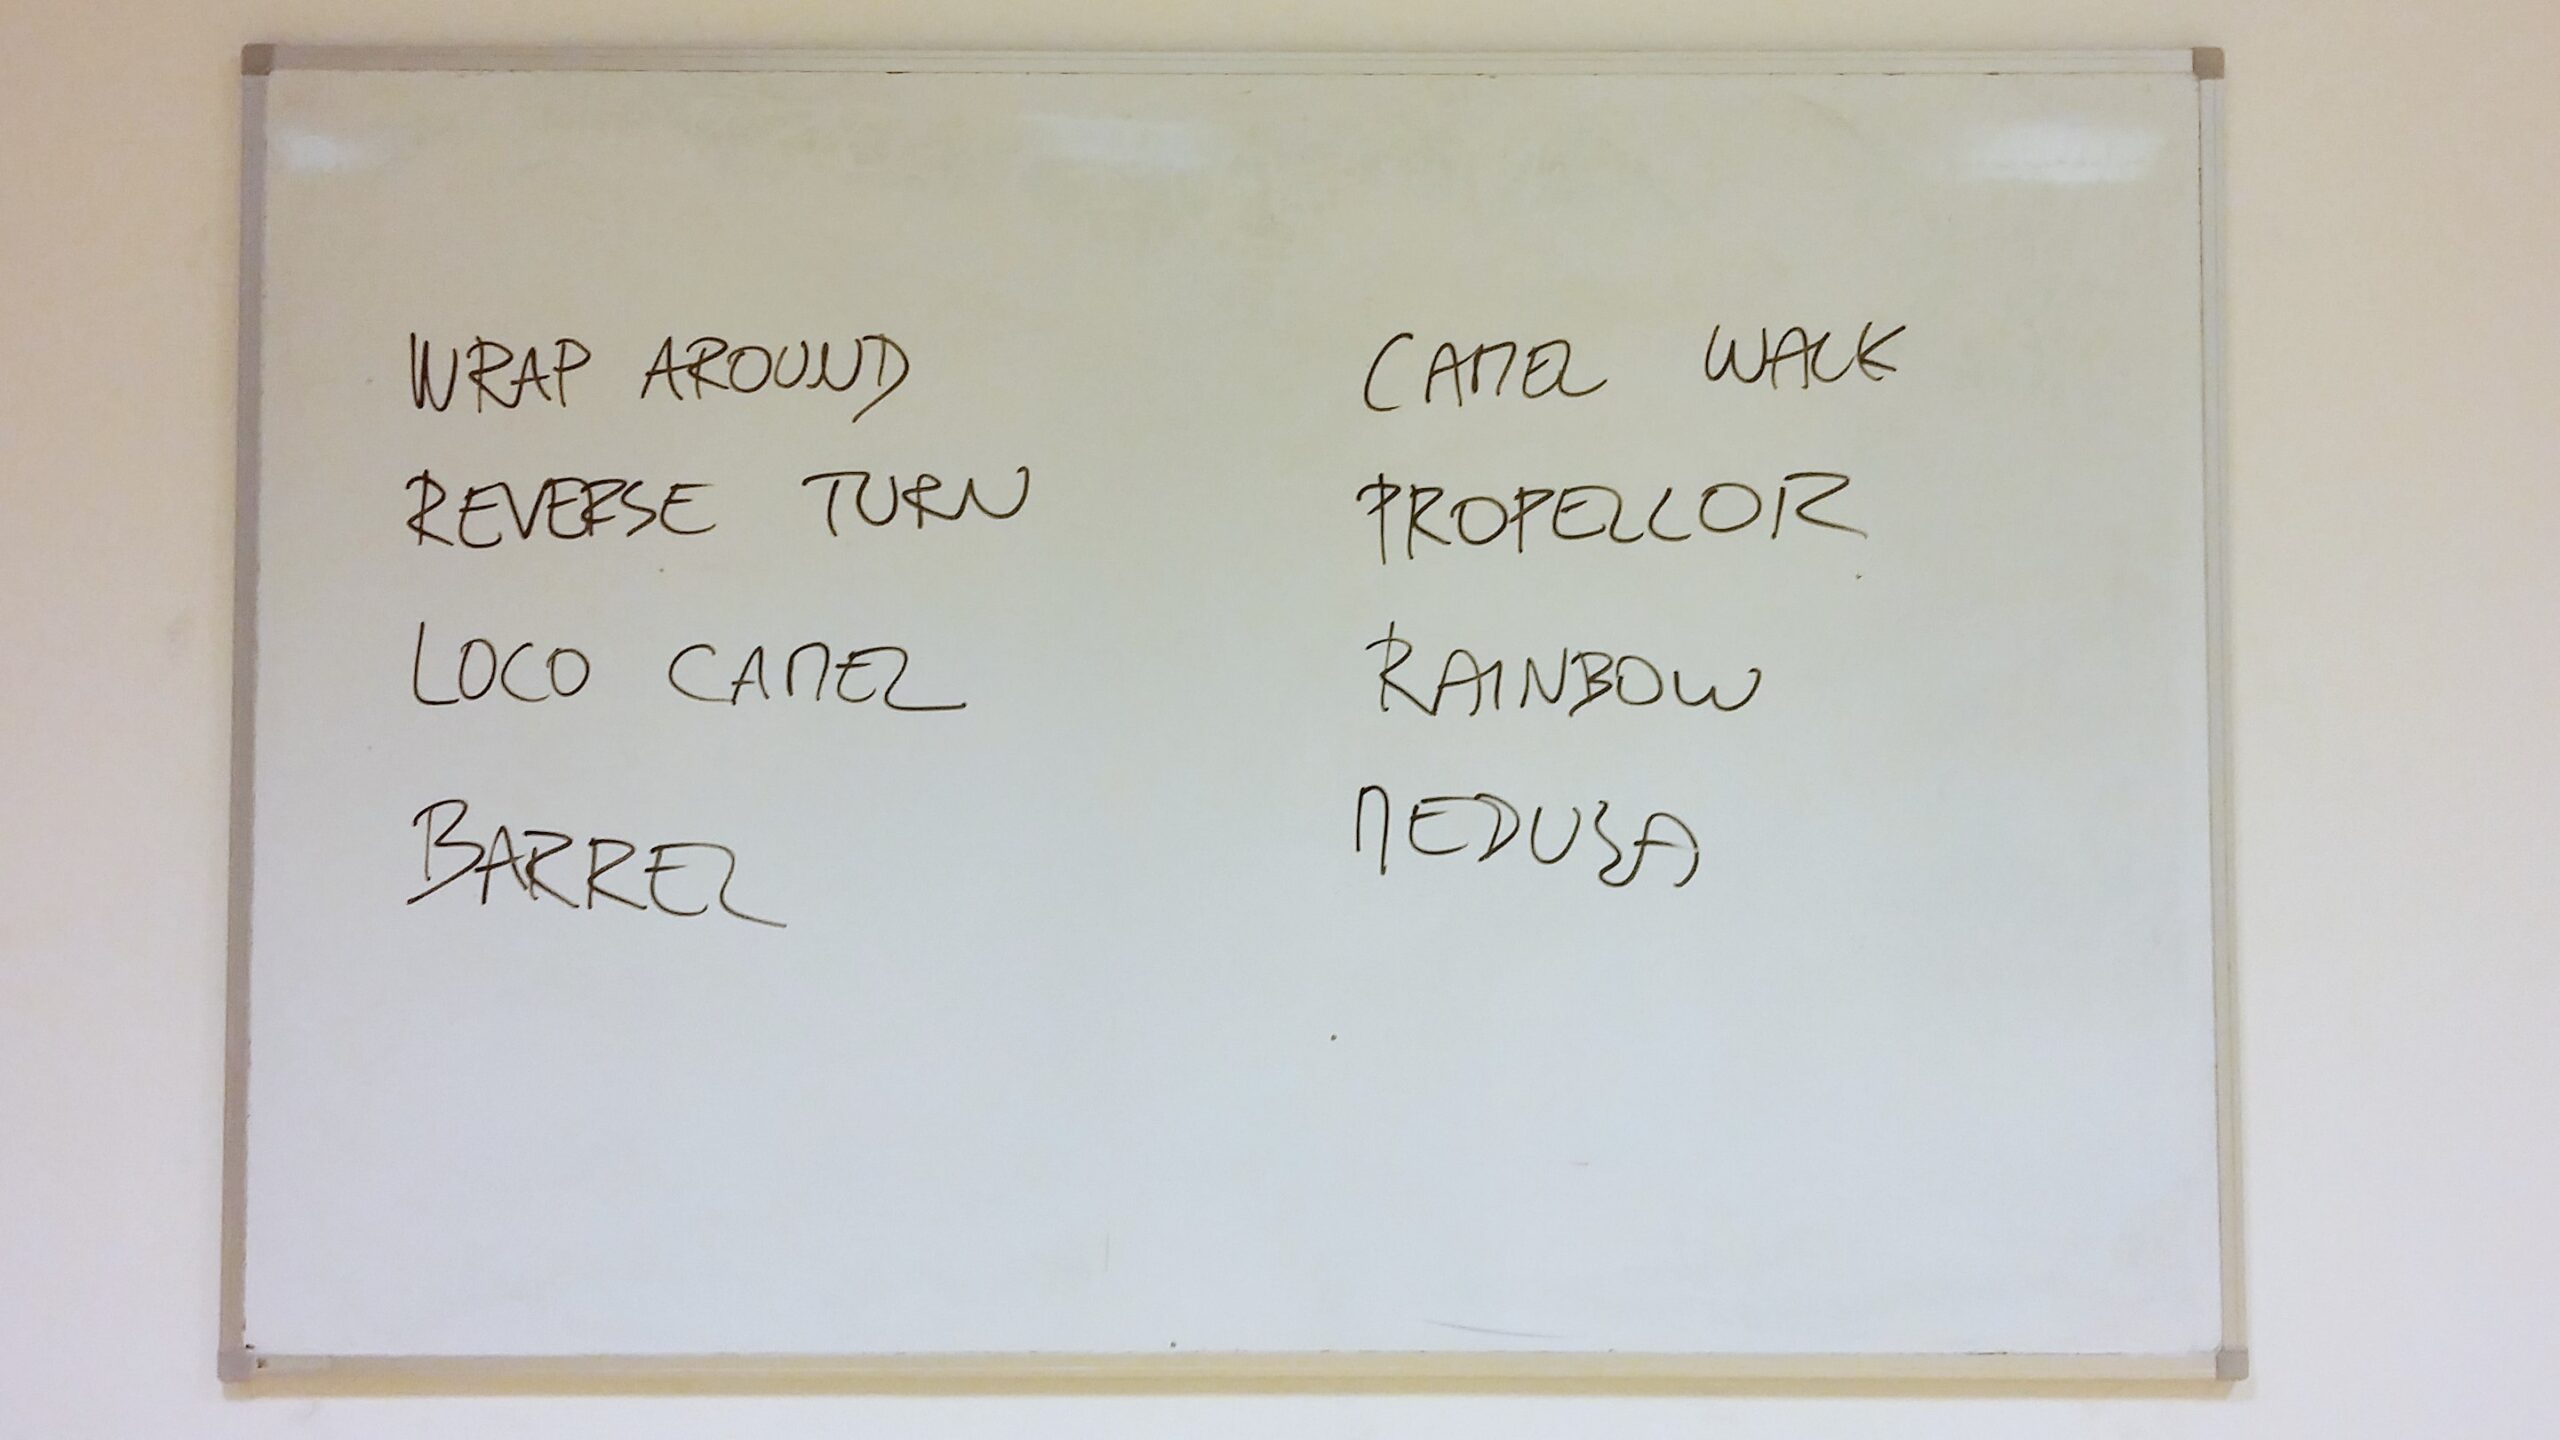 WRAP AROUND
REVERSE TURN
LOCO CAMEL
BARREL
CAMEL WALK
PROPELLOR
RAINBOW
MEDUSA